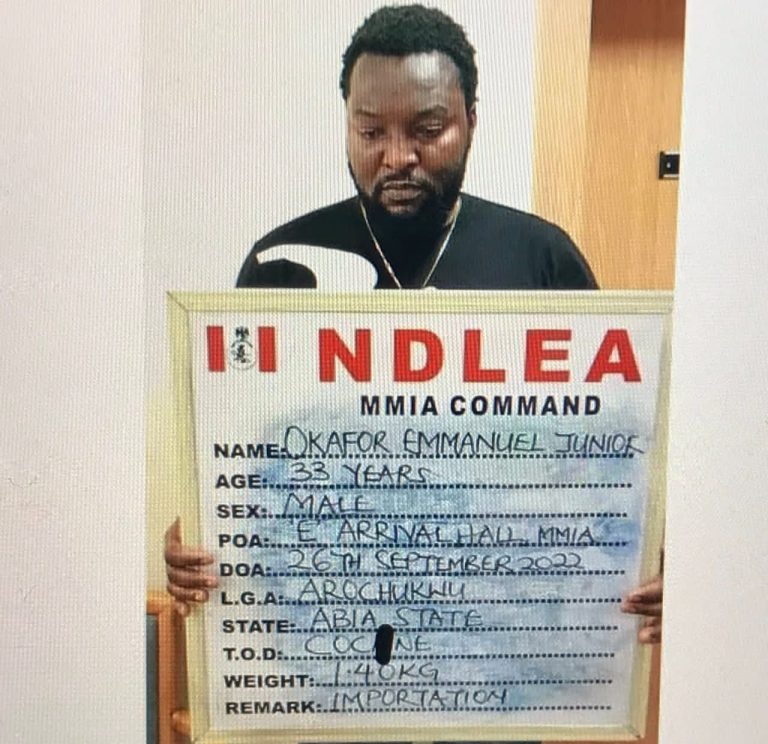 NDLEA
MMIA COMMAND
NAME: OKAFOR EMMANUEL JUNIOR
AGE: 33 YEARS
SEX: MALE
POA: 'E' ARRIVAL HALL, MMIA
DOA: 26TH SEPTEMBER 2022
L.G.A: AROCHUKWU
STATE: ABIA STATE
T.O.D: COC NE
WEIGHT: 1.40KG
REMARK: IMPORTATION